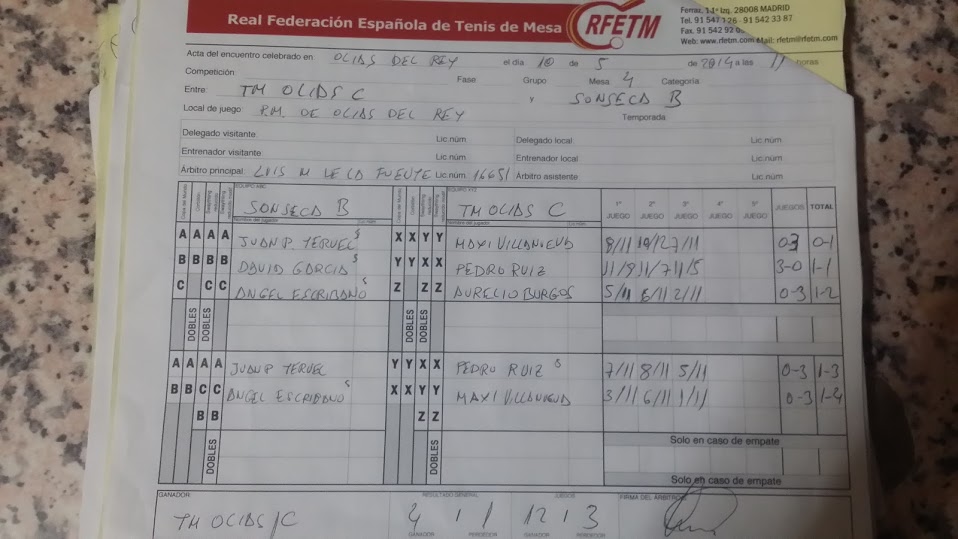 Real Federación Española de Tenis de Mesa
RFETM
Ferraz, 1ª Izq. 28008 MADRID
Tel. 91 547 26 - 91 542 33 87
Fax. 91 542 92 0
Web: www.rfetm.com Mail: rfetm@rfetm.com
Acta del encuentro celebrado en OLIAS DEL REY el día 10 de 5 de 2014 a las 11 horas
Competición Fase Grupo Mesa 4 Categoría
Entre: TM OLIAS C y SONSECA B
Local de juego: P.M. DE OLIAS DEL REY Temporada
Delegado visitante: Lic.núm Delegado local Lic.núm
Entrenador visitante: Lic.núm Entrenador local Lic.núm
Árbitro principal LUIS M DE LA FUENTE Lic.núm 16651 Árbitro asistente Lic.núm
EQUIPO ABC EQUIPO XYZ
SONSECA B TM OLIAS C 1º JUEGO 2º JUEGO 3º JUEGO 4º JUEGO 5º JUEGO JUEGOS TOTAL
Nombre del jugador Nombre del jugador
A A A A JUAN P. TERUEL S X X Y Y MAXI VILLANUEVA 8/11 10/12 7/11 0-3 0-1
B B B B DAVID GARCIA S Y Y X X PEDRO RUIZ 11/9 11/7 11/5 3-0 1-1
C C C ANGEL ESCRIBANO S Z Z Z AURELIO BURGOS 5/11 6/11 2/11 0-3 1-2
DOBLES DOBLES DOBLES DOBLES
A A A A JUAN P TERUEL Y Y X X PEDRO RUIZ S 7/11 8/11 5/11 0-3 1-3
B B C C ANGEL ESCRIBANO S X X Y Y MAXI VILLANUEVA 3/11 6/11 1/11 0-3 1-4
B B Z Z
Solo en caso de empate
DOBLES DOBLES
Solo en caso de empate
GANADOR RESULTADO GENERAL JUEGOS FIRMA DEL ARBITRO
TM OLIAS C 4 1 12 3
GANADOR PERDEDOR GANADOR PERDEDOR